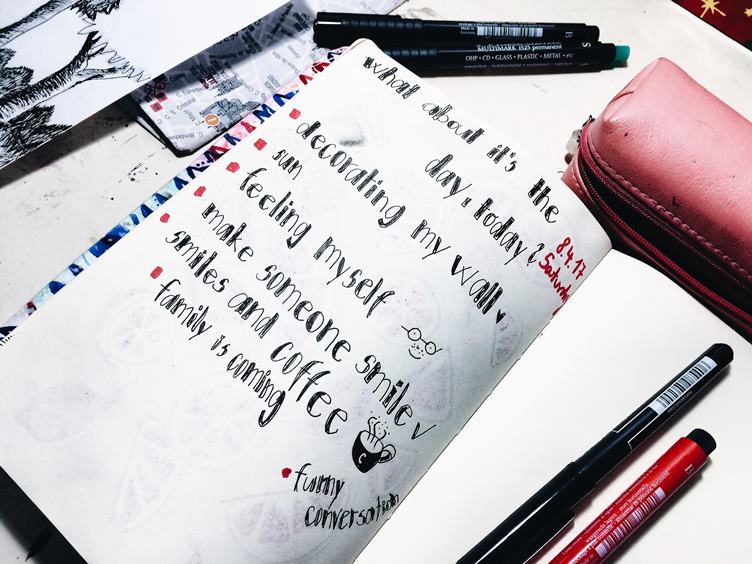 What about it's the
day, today?
8.4.17
Saturday
decorating my wall
sun
feeling myself
make someone smile
smiles and coffee
family is coming
funny
conversation
MULTIMARK 1525 permanent
OHP • CD • GLASS • PLASTIC • METAL • etc.
B
S